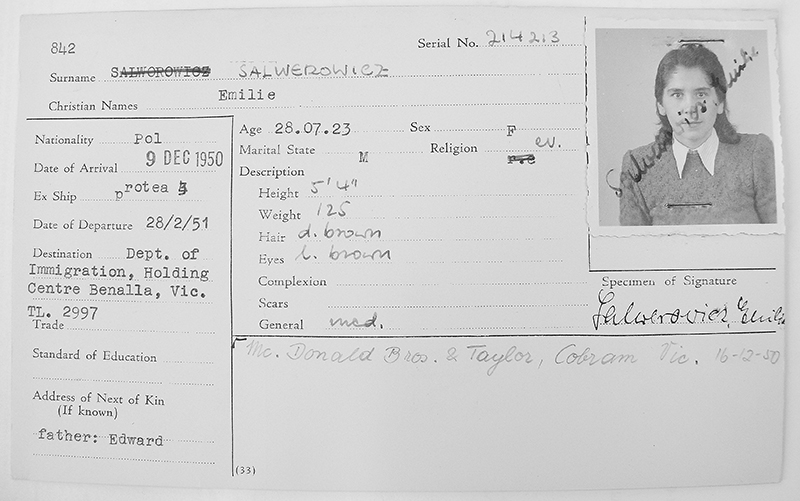 842
Serial No. 214213
Surname SALWOROWICZ SALWEROWICZ
Christian Names Emilie
Nationality Pol
Date of Arrival 9 DEC 1950
Ex Ship protea 5
Date of Departure 28/2/51
Destination Dept. of
Immigration, Holding
Centre Benalla, Vic.
TL. 2997
Trade
Standard of Education
Address of Next of Kin
(If known)
father: Edward
Age 28.07.23 Sex F
Marital State M Religion r.c ev.
Description
Height 5'4"
Weight 125
Hair d. brown
Eyes l. brown
Complexion
Scars
General med.
Specimen of Signature
Salwerowicz, Emilie
Mc. Donald Bros. & Taylor, Cobram Vic. 16-12-50
(33)